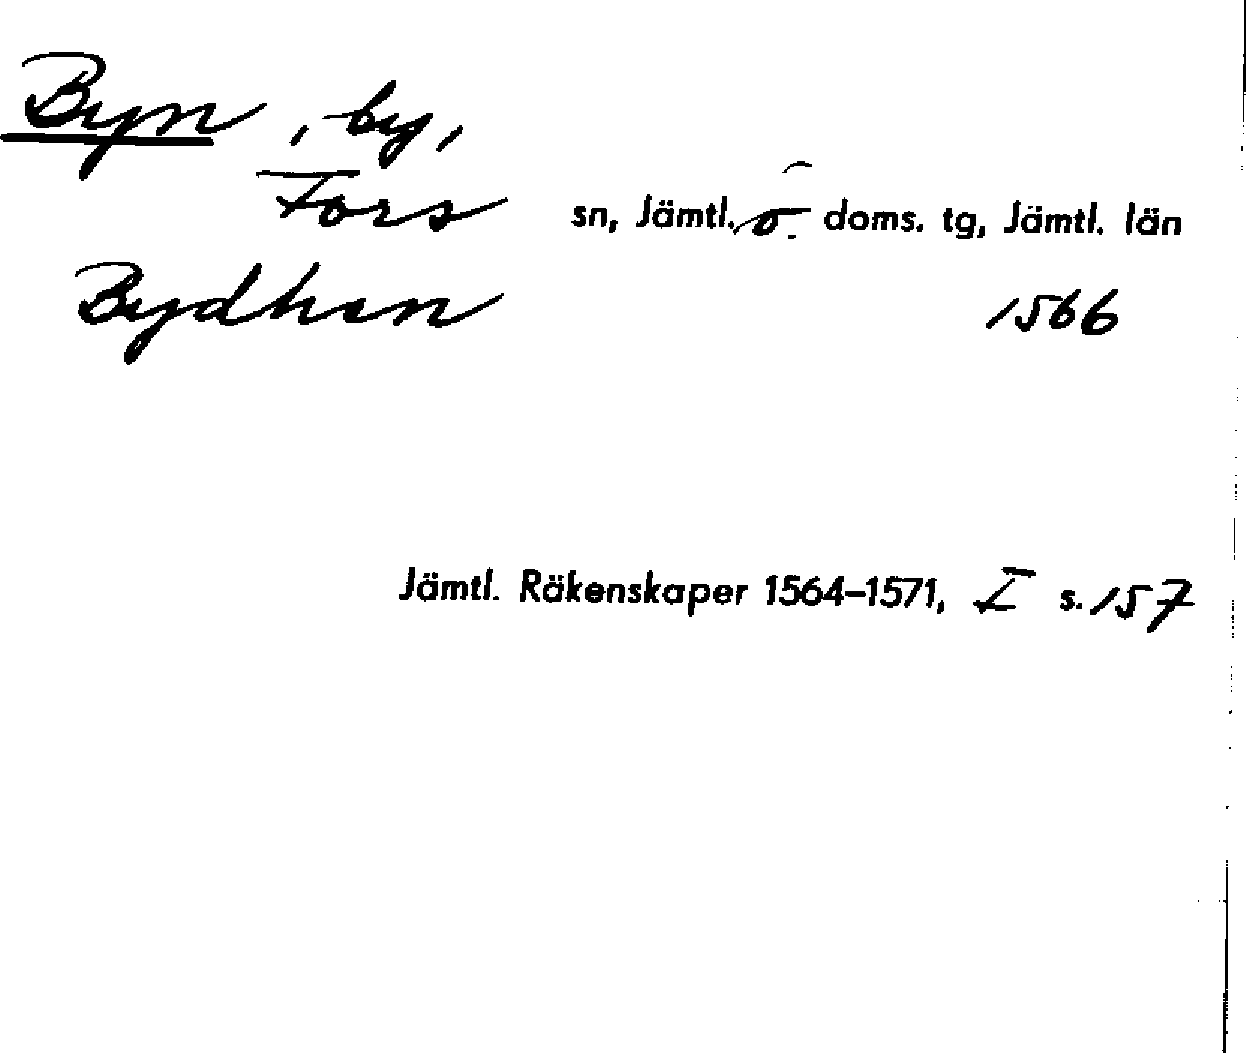 Byn, by,
Fors sn, Jämtl. ö. doms. tg, Jämtl. län
Bydhen 1566
Jämtl. Räkenskaper 1564–1571, I s. 157